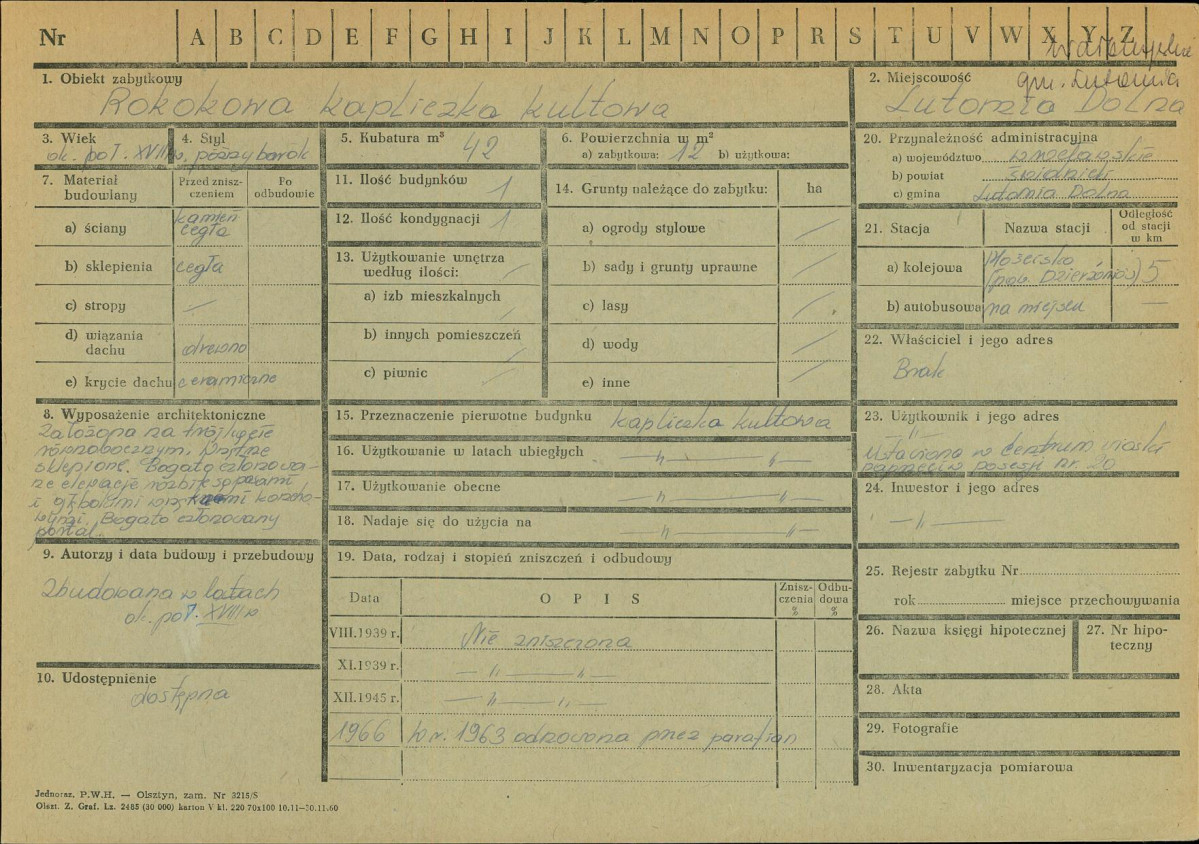 Nr A B C D E F G H I J K L M N O P R S T U V W X Y Z
1. Obiekt zabytkowy
Rokokowa kapliczka kultowa
2. Miejscowość
gm. Lutomia
Lutomia Dolna
3. Wiek
ok. poł. XVIII w.
4. Styl
późny barok
5. Kubatura m³
42
6. Powierzchnia w m²
a) zabytkowa: 12 b) użytkowa:
7. Materiał budowlany
Przed zniszczeniem
Po odbudowie
a) ściany
kamień
cegła
b) sklepienia cegła
c) stropy —
d) wiązania dachu drewno
e) krycie dachu ceramiczne
8. Wyposażenie architektoniczne
Założona na trójkącie
równobocznym. Wnętrze
sklepione. Bogato członowa-
ne elewacje rozbite są
i głębokimi
Bogato członowany
portal.
9. Autorzy i data budowy i przebudowy
Zbudowana w latach
ok. poł. XVIII w
10. Udostępnienie
dostępna
11. Ilość budynków 1
12. Ilość kondygnacji 1
13. Użytkowanie wnętrza według ilości: —
a) izb mieszkalnych —
b) innych pomieszczeń —
c) piwnic —
14. Grunty należące do zabytku: ha
a) ogrody stylowe —
b) sady i grunty uprawne —
c) lasy —
d) wody —
e) inne —
15. Przeznaczenie pierwotne budynku kapliczka kultowa
16. Użytkowanie w latach ubiegłych — " — " —
17. Użytkowanie obecne — " — " —
18. Nadaje się do użycia na — " — " —
19. Data, rodzaj i stopień zniszczeń i odbudowy
Data
OPIS
Zniszczenia %
Odbudowa %
VIII.1939 r. Nie zniszczona
XI.1939 r. — " — " —
XII.1945 r. — " — " —
1966 W r. 1963 odnowiona przez parafian
20. Przynależność administracyjna
a) województwo wrocławskie
b) powiat świdnicki
c) gmina Lutomia Dolna
21. Stacja
Nazwa stacji
Odległość od stacji w km
a) kolejowa
Mościsko
(pow. Dzierżoniów) 5
b) autobusowa na miejscu —
22. Właściciel i jego adres
Brak
23. Użytkownik i jego adres
Ustawiona w centrum wioski
naprzeciw posesji nr. 20
24. Inwestor i jego adres
— " —
25. Rejestr zabytku Nr
rok miejsce przechowywania
26. Nazwa księgi hipotecznej
27. Nr hipoteczny
28. Akta
29. Fotografie
30. Inwentaryzacja pomiarowa
Jednoraz. P.W.H. — Olsztyn, zam. Nr 3215/S
Olszt. Z. Graf. Lz. 2485 (30 000) karton V kl. 220 70x100 10.11—30.11.60